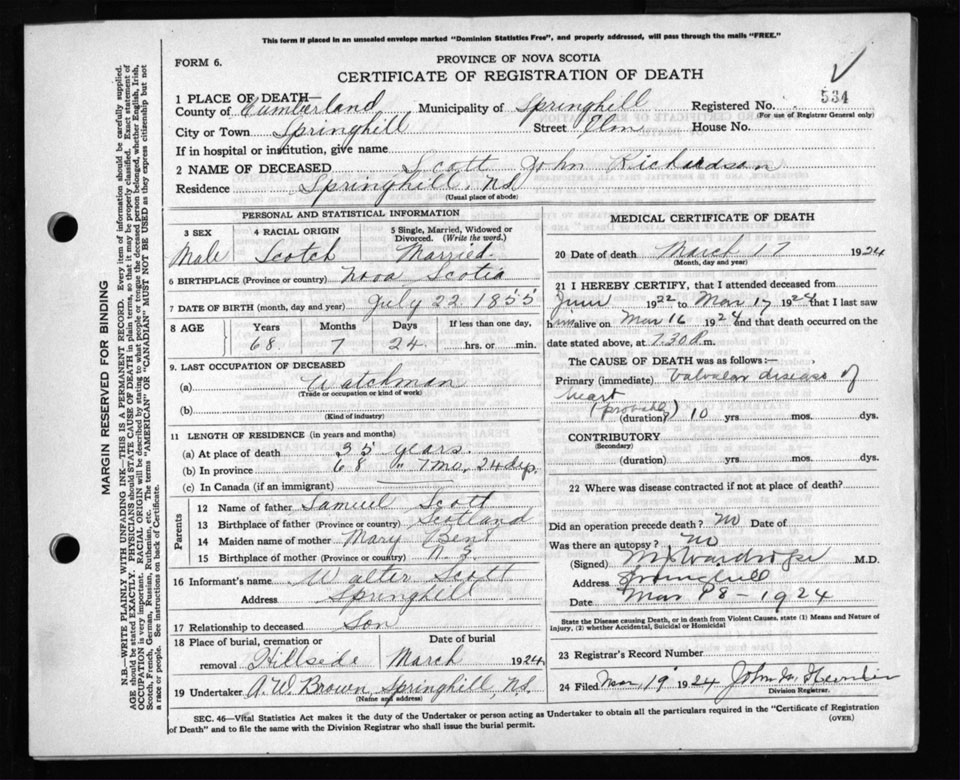 This form if placed in an unsealed envelope marked "Dominion Statistics Free", and properly addressed, will pass through the mails "FREE."
FORM 6.
PROVINCE OF NOVA SCOTIA
CERTIFICATE OF REGISTRATION OF DEATH
1 PLACE OF DEATH—
County of Cumberland Municipality of Springhill Registered No. 534
(For use of Registrar General only)
City or Town Springhill Street Elm House No.
If in hospital or institution, give name
2 NAME OF DECEASED Scott John Richardson
Residence Springhill, N.S.
(Usual place of abode)
PERSONAL AND STATISTICAL INFORMATION
3 SEX 4 RACIAL ORIGIN 5 Single, Married, Widowed or Divorced. (Write the word.)
Male Scotch Married.
6 BIRTHPLACE (Province or country) Nova Scotia
7 DATE OF BIRTH (month, day and year) July 22 1855
8 AGE Years Months Days If less than one day,
68 7 24 hrs. or min.
9. LAST OCCUPATION OF DECEASED
(a) Watchman
(Trade or occupation or kind of work)
(b)
(Kind of industry)
11 LENGTH OF RESIDENCE (in years and months)
(a) At place of death 35 years.
(b) In province 68 " 7 mo, 24 dys.
(c) In Canada (if an immigrant)
Parents
12 Name of father Samuel Scott
13 Birthplace of father (Province or country) Scotland
14 Maiden name of mother Mary Bent
15 Birthplace of mother (Province or country) N.S.
16 Informant's name Walter Scott
Address Springhill
17 Relationship to deceased Son
18 Place of burial, cremation or Date of burial
removal Hillside March 1924
19 Undertaker A.W. Brown, Springhill, N.S.
(Name and address)
MEDICAL CERTIFICATE OF DEATH
20 Date of death March 17 1924
(Month, day and year)
21 I HEREBY CERTIFY, that I attended deceased from
June 1922 to Mar 17 1924 that I last saw
him alive on Mar 16 1924 and that death occurred on
the date stated above, at 7.30 m.
The CAUSE OF DEATH was as follows:—
Primary (immediate) Valvular disease of
heart
(probably) 10 yrs. mos. dys.
(duration)
CONTRIBUTORY
(Secondary)
(duration) yrs. mos. dys.
22 Where was disease contracted if not at place of death?
Did an operation precede death? No Date of
Was there an autopsy? No
(Signed) M.D.
Address Springhill
Date Mar 18 - 1924
State the Disease causing Death, or in death from Violent Causes, state (1) Means and Nature of
Injury, (2) whether Accidental, Suicidal or Homicidal
23 Registrar's Record Number
24 Filed Mar, 19 1924 John
Division Registrar.
SEC. 46—Vital Statistics Act makes it the duty of the Undertaker or person acting as Undertaker to obtain all the particulars required in the "Certificate of Registration
of Death" and to file the same with the Division Registrar who shall issue the burial permit. (OVER)
MARGIN RESERVED FOR BINDING
N.B.—WRITE PLAINLY WITH UNFADING INK—THIS IS A PERMANENT RECORD. Every item of information should be carefully supplied.
AGE should be stated EXACTLY. PHYSICIANS should STATE CAUSE OF DEATH in plain terms, so that it may be properly classified. Exact statement of
OCCUPATION is very important. RACIAL ORIGIN will be described by stating to what people or tongue the deceased person belonged, whether English, Irish,
Scotch, French, German, Russian, Ruthenian, etc. The terms "AMERICAN" OR "CANADIAN" MUST NOT BE USED as they express citizenship but not
a race or people. See instructions on back of Certificate.